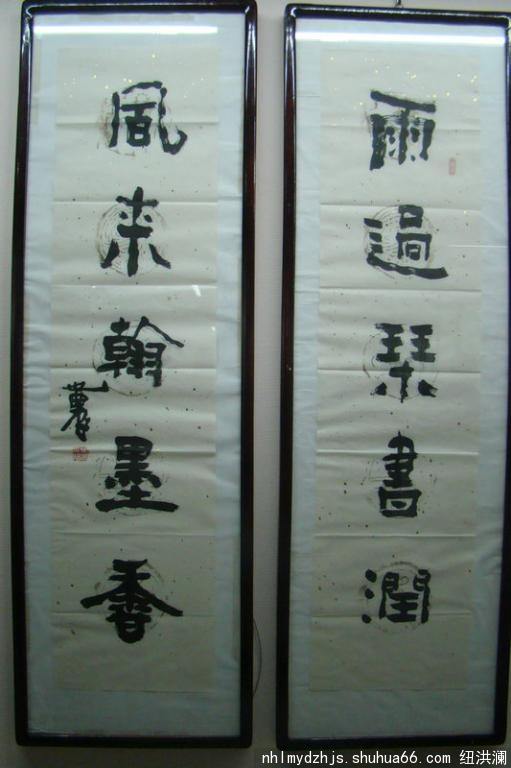 雨過琹書潤
風来翰墨香
nhlmydzhjs.shuhua66.com 纽洪澜